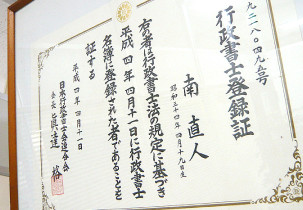 行政書士登録証
南 直人
昭和三十四年四月十九日生
右の者は行政書士法の規定に基づき
平成四年四月十一日に行政書士
名簿に登録された者であることを
証する
平成四年四月十一日
日本行政書士会連合会
会長